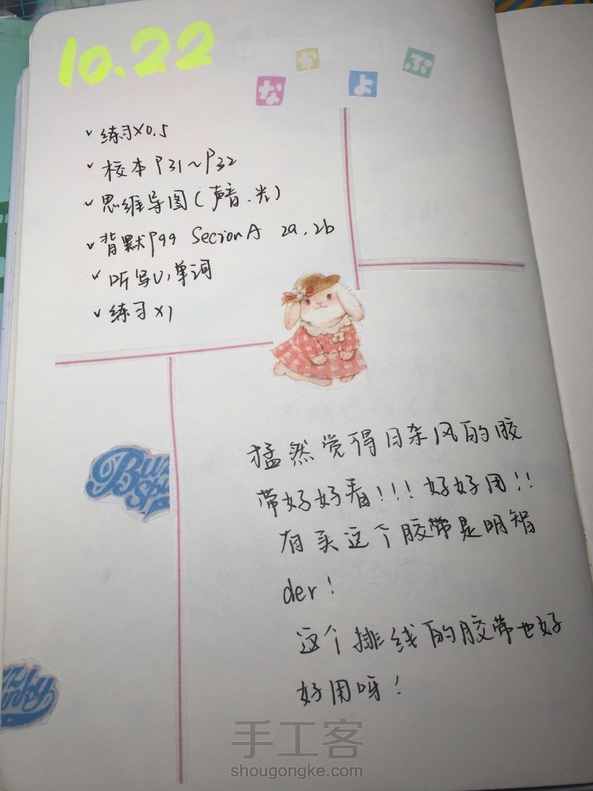 10.22
な か よ ぶ
✓ 练习×0.5
✓ 校本 P31~P32
✓ 思维导图(声音、光)
✓ 背默P99 Secrion A 2a, 2b
✓ 听写U1单词
✓ 练习×1
猛然觉得日杂风的胶
带好好看!!!好好用!!
有买这个胶带是明智
der!
这个排线的胶带也好
好用呀!
手工客
shougongke.com